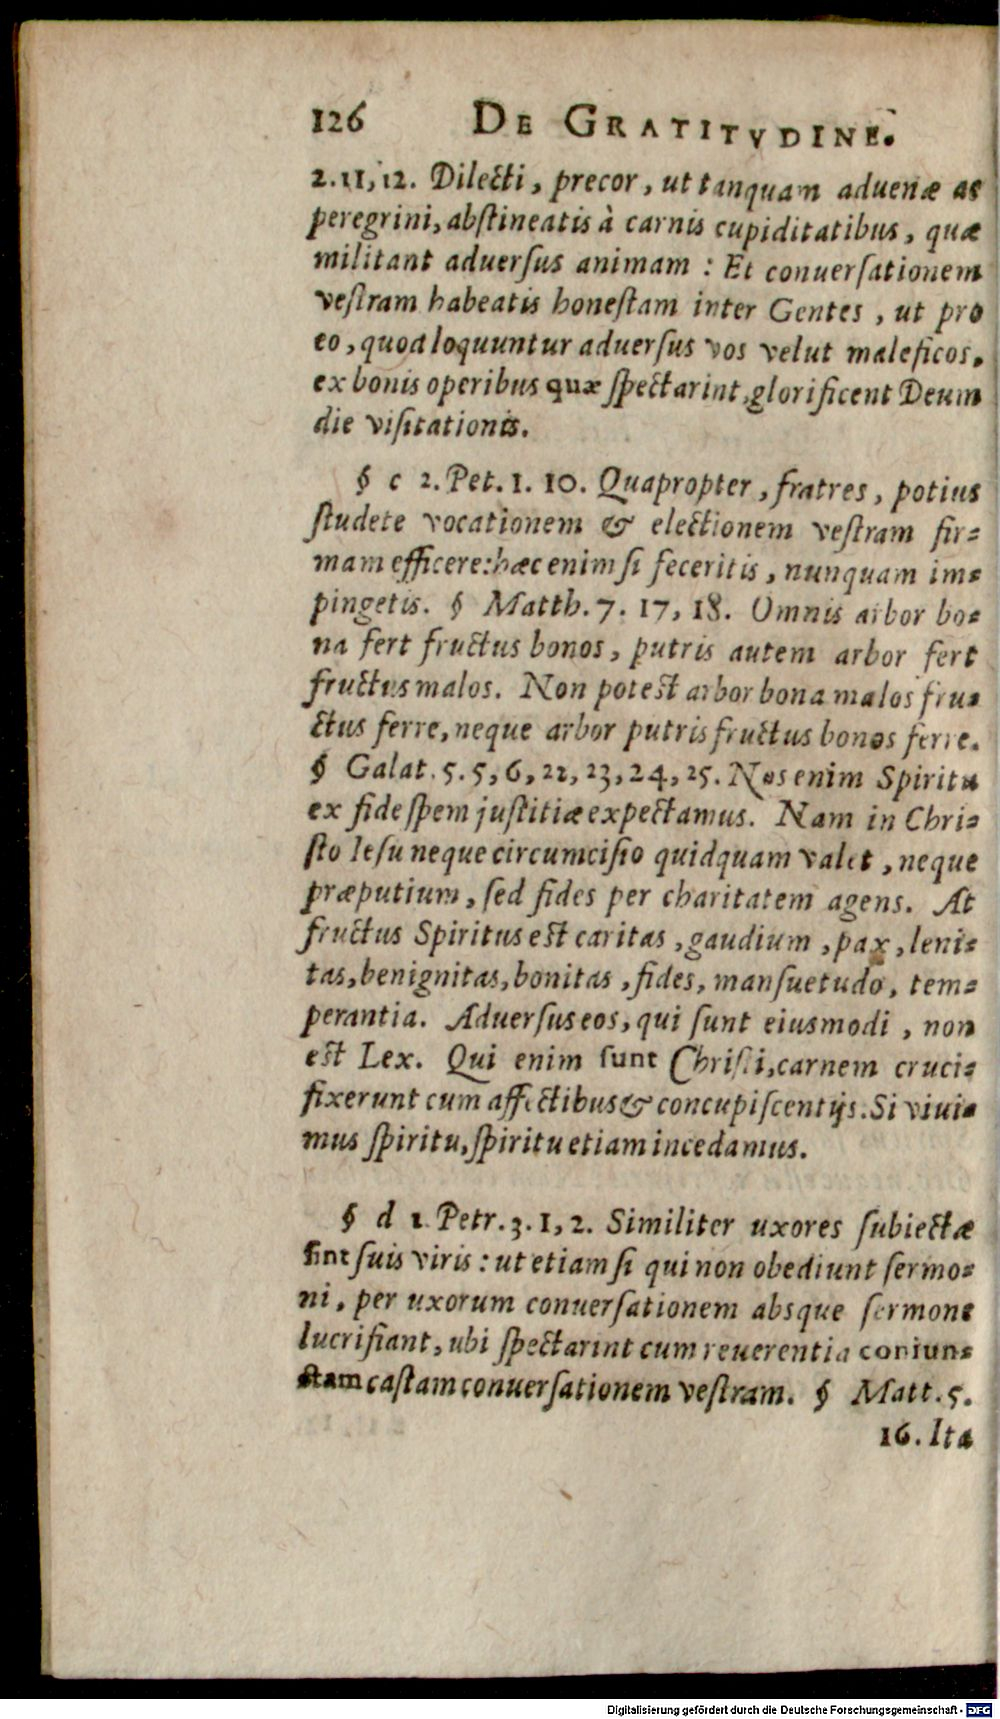 126 DE GRATITVDINE.
2.11,12. Dilecti, precor, ut tanquam aduenæ ac
peregrini, abſtineatis à carnis cupiditatibus, quæ
militant aduerſus animam : Et conuerſationem
veſtram habeatis honeſtam inter Gentes, ut pro
eo, quod loquuntur aduerſus vos velut maleficos,
ex bonis operibus quæ ſpectarint, glorificent Deum
die viſitationis.
§ c 2. Pet. 1. 10. Quapropter, fratres, potius
ſtudete vocationem & electionem veſtram fir=
mam efficere: hæc enim ſi feceritis, nunquam im=
pingetis. § Matth. 7. 17, 18. Omnis arbor bo=
na fert fructus bonos, putris autem arbor fert
fructus malos. Non potest arbor bona malos fru=
ctus ferre, neque arbor putris fructus bonos ferre.
§ Galat. 5. 5, 6, 22, 23, 24, 25. Nos enim Spiritu
ex fide ſpem juſtitiæ expectamus. Nam in Chri=
ſto Ieſu neque circumciſio quidquam valet, neque
præputium, ſed fides per charitatem agens. At
fructus Spiritus est caritas, gaudium, pax, leni=
tas, benignitas, bonitas, fides, manſuetudo, tem=
perantia. Aduerſus eos, qui ſunt eiusmodi, non
est Lex. Qui enim ſunt Chriſti, carnem cruci=
fixerunt cum affectibus & concupiſcentijs. Si viui=
mus ſpiritu, ſpiritu etiam incedamus.
§ d 1. Petr. 3. 1, 2. Similiter uxores ſubiectæ
ſint ſuis viris: ut etiam ſi qui non obediunt ſermo=
ni, per uxorum conuerſationem absque ſermone
lucrifiant, ubi ſpectarint cum reuerentia coniun=
ctam caſtam conuerſationem veſtram. § Matt. 5.
16. Ita
Digitalisierung gefördert durch die Deutsche Forschungsgemeinschaft - DFG